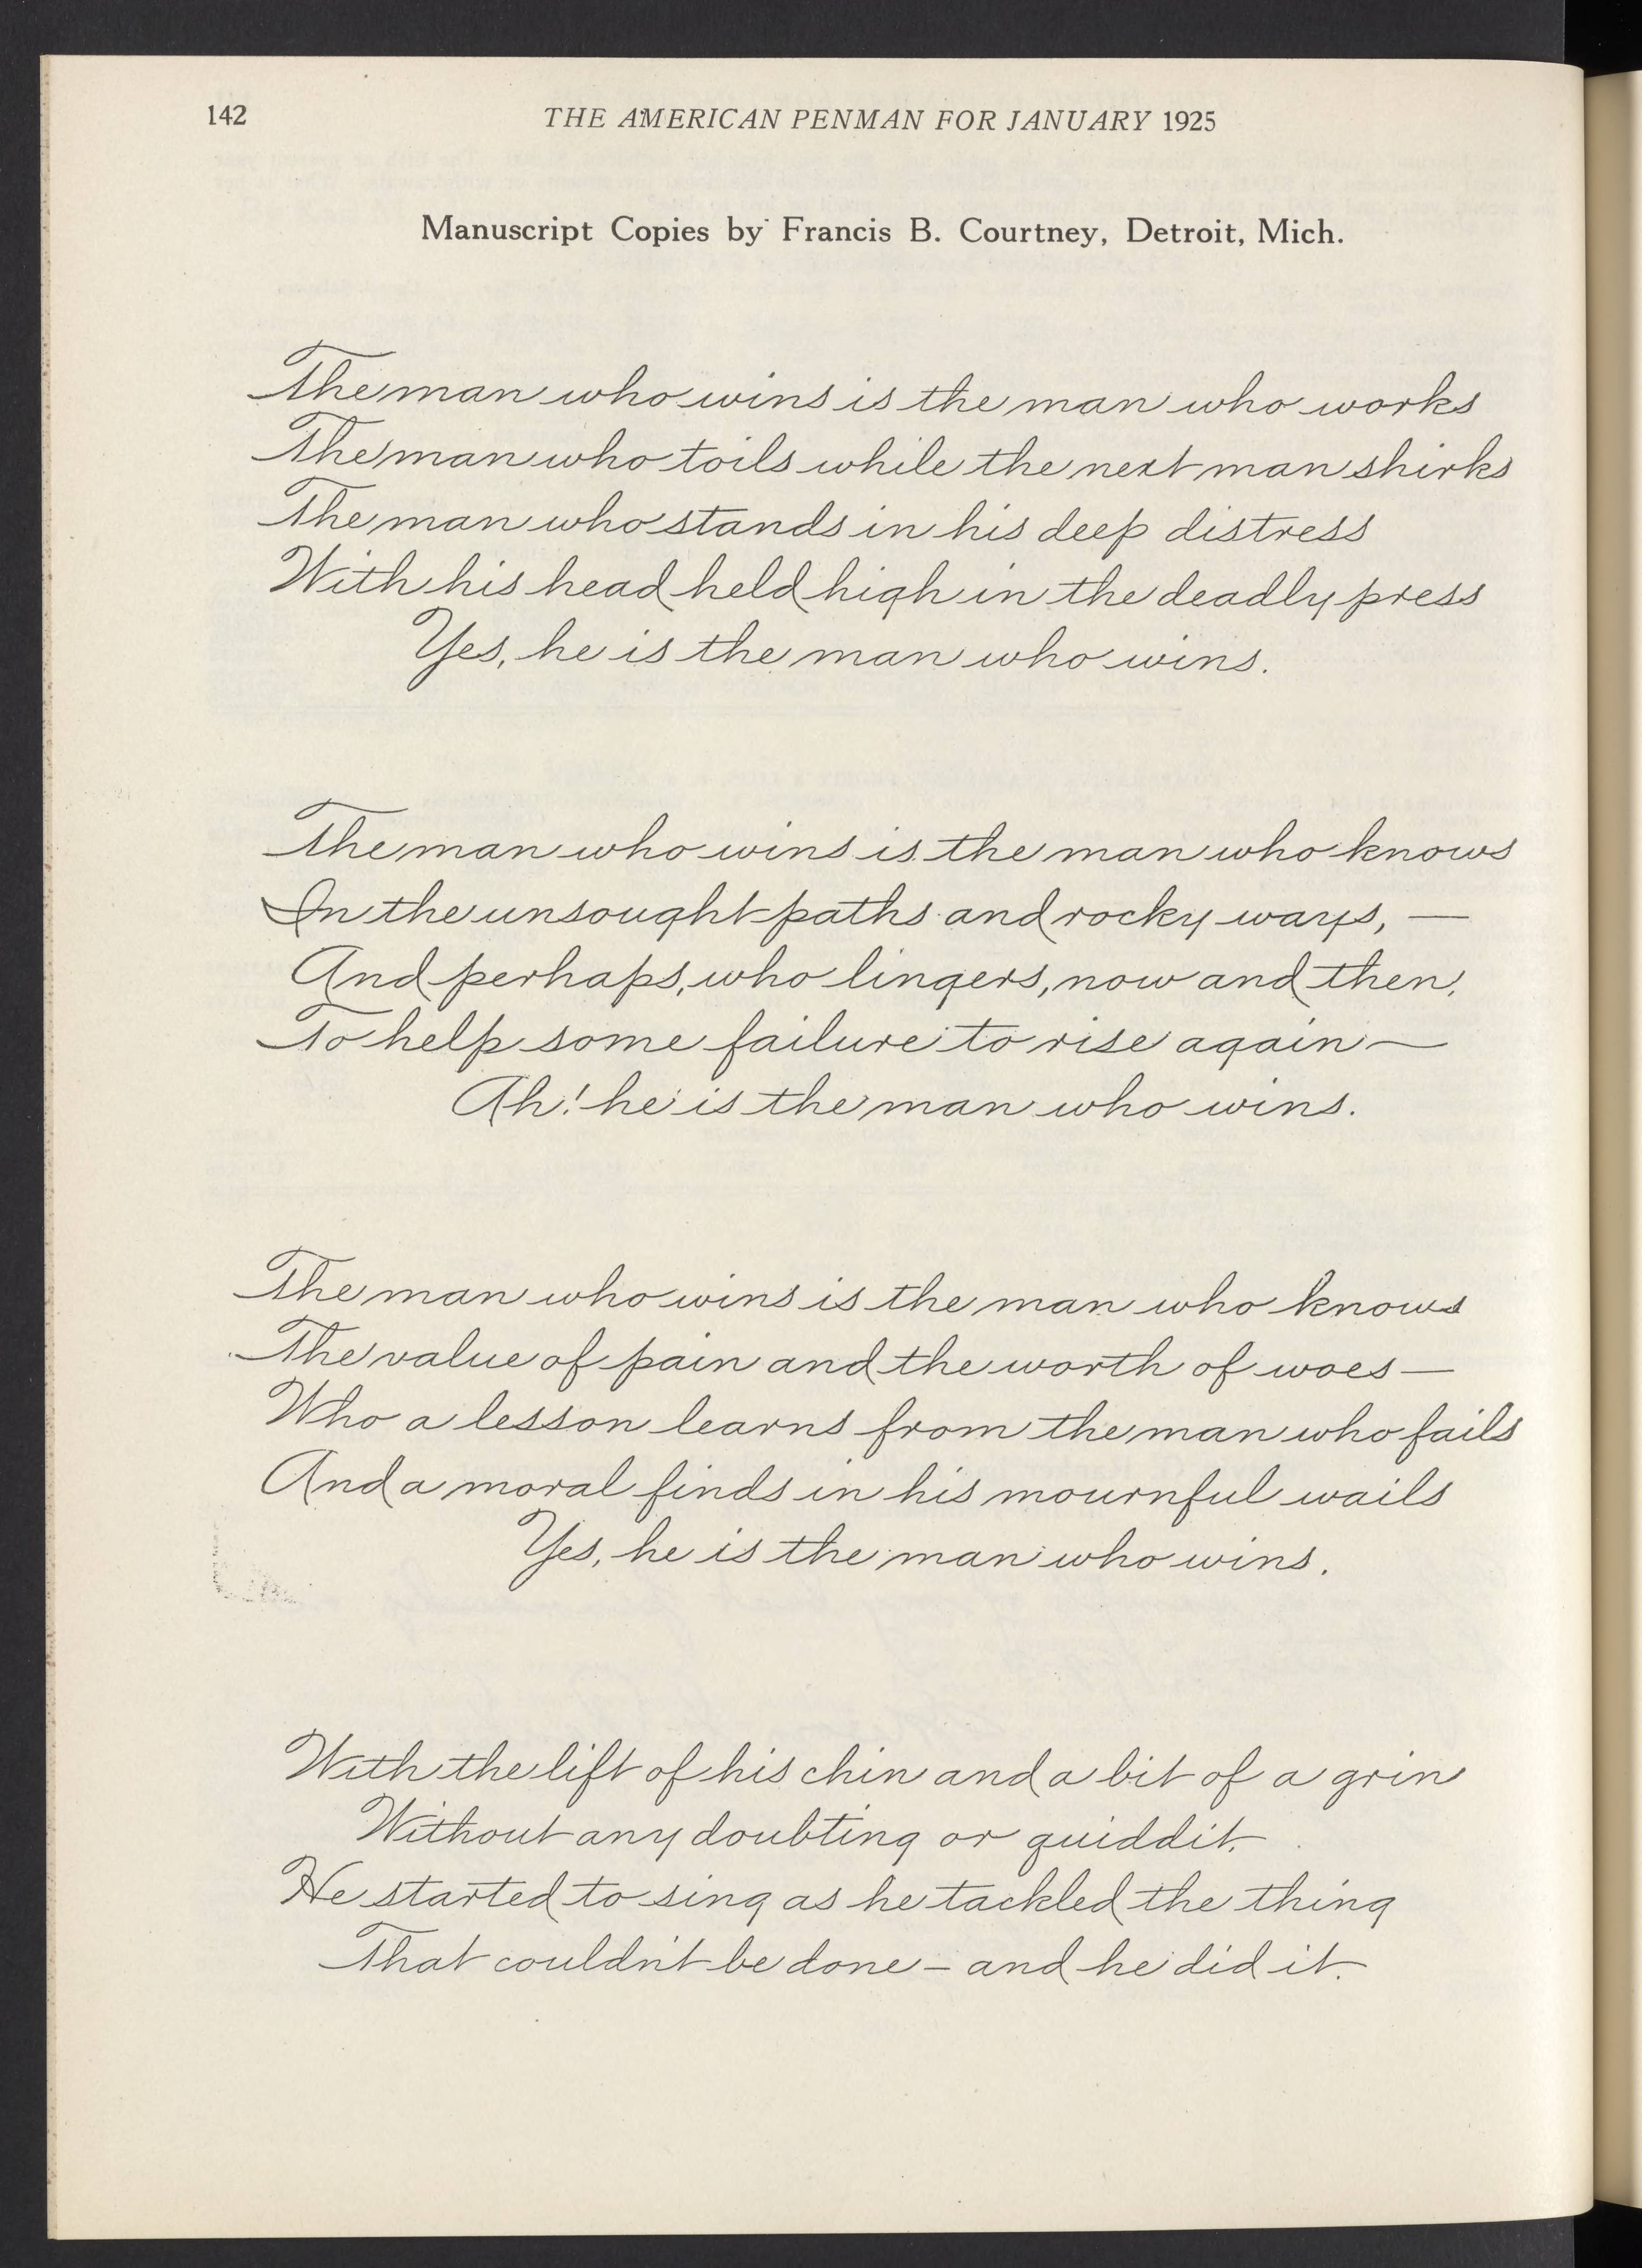 142
THE AMERICAN PENMAN FOR JANUARY 1925
Manuscript Copies by Francis B. Courtney, Detroit, Mich.
The man who wins is the man who works
The man who toils while the next man shirks
The man who stands in his deep distress
With his head held high in the deadly press
Yes, he is the man who wins.
The man who wins is the man who knows
In the unsought paths and rocky ways, —
And perhaps, who lingers, now and then,
To help some failure to rise again —
Ah! he is the man who wins.
The man who wins is the man who knows
The value of pain and the worth of woes —
Who a lesson learns from the man who fails
And a moral finds in his mournful wails
Yes, he is the man who wins.
With the lift of his chin and a bit of a grin
Without any doubting or quiddit,
He started to sing as he tackled the thing
That couldn't be done – and he did it.